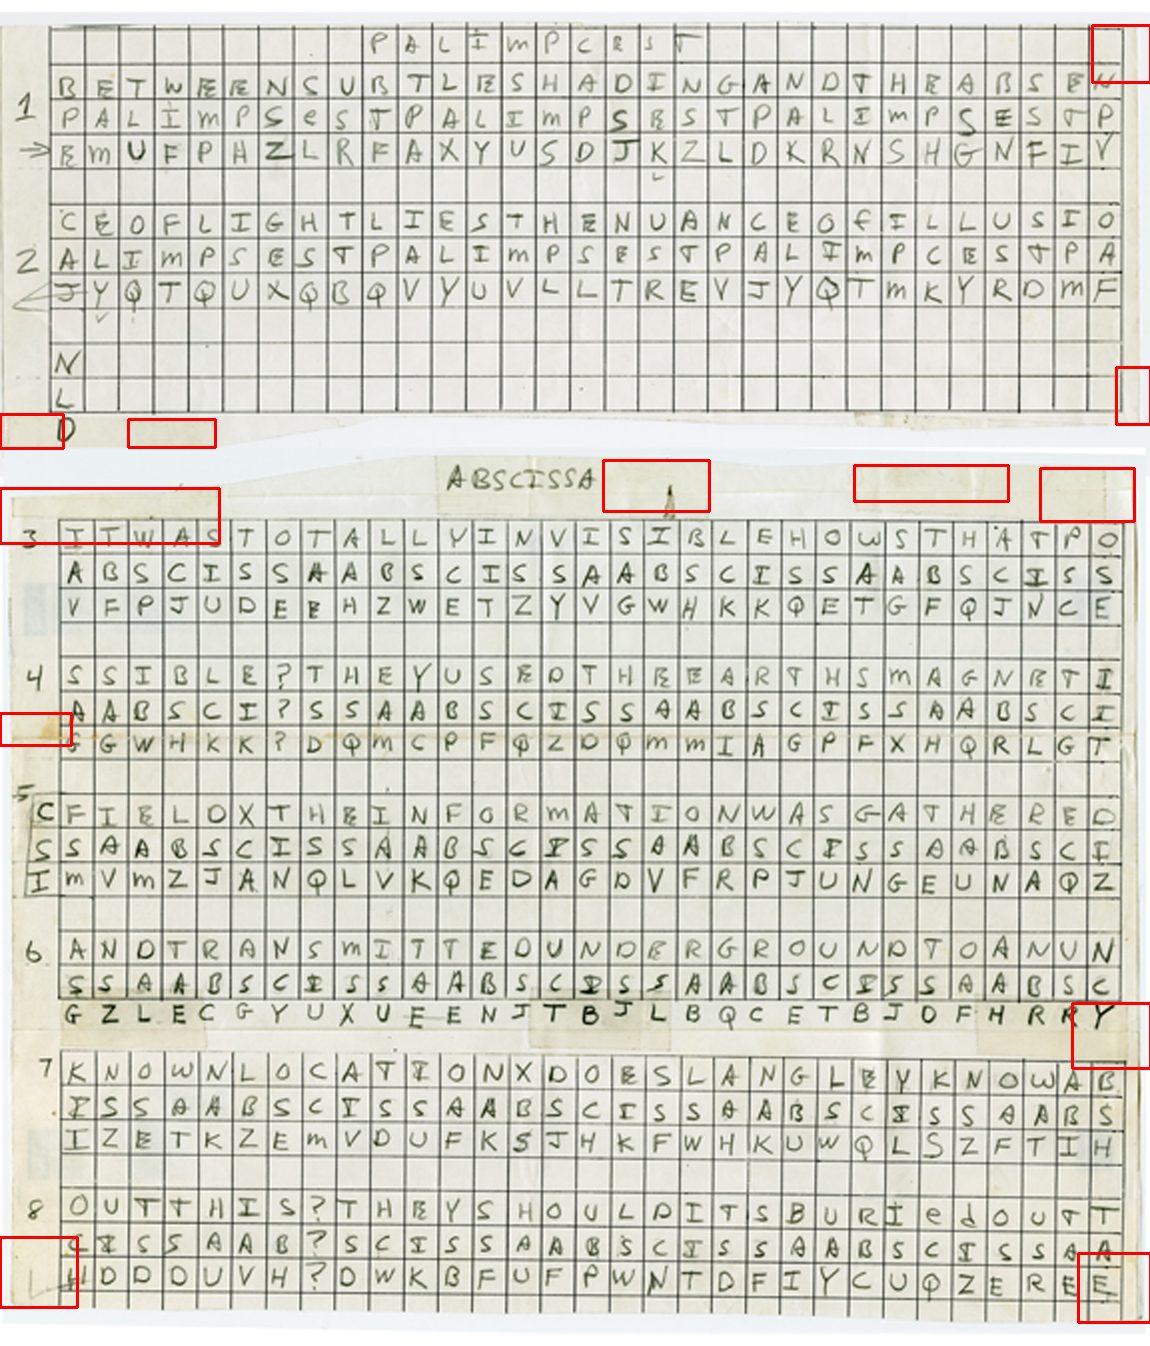 P A L I m P C E S T
1 B E T W E E N S U B T L E S H A D I N G A N D T H E A B S E N
P A L I m P S e S T P A L I m P S E S T P A L I m P S E S T P
E m U F P H Z L R F A X Y U S D J K Z L D K R N S H G N F I V
2 C E O F L I G H T L I E S T H E N U A N C E O f I L L U S I O
A L I m P S E S T P A L I m P S E S T P A L I m P C E S T P A
J Y Q T Q U X Q B Q V Y U V L L T R E V J Y Q T m K Y R D m F
N
L
D
ABSCISSA
3 I T W A S T O T A L L Y I N V I S I B L E H O W S T H A T P O
A B S C I S S A A B S C I S S A A B S C I S S A A B S C I S S
V F P J U D E E H Z W E T Z Y V G W H K K Q E T G F Q J N C E
4 S S I B L E ? T H E Y U S E D T H E E A R T H S m A G N E T I
A A B S C I ? S S A A B S C I S S A A B S C I S S A A B S C I
G G W H K K ? D Q m C P F Q Z D Q m m I A G P F X H Q R L G T
5 C F I E L D X T H E I N F O R m A T I O N W A S G A T H E R E D
S S A A B S C I S S A A B S C I S S A A B S C I S S A A B S C I
I m V m Z J A N Q L V K Q E D A G D V F R P J U N G E U N A Q Z
6 A N D T R A N S m I T T E D U N D E R G R O U N D T O A N U N
S S A A B S C I S S A A B S C I S S A A B S C I S S A A B S C
G Z L E C G Y U X U E E N J T B J L B Q C E T B J D F H R R Y
7 K N O W N L O C A T I O N X D O E S L A N G L E Y K N O W A B
I S S A A B S C I S S A A B S C I S S A A B S C I S S A A B S
I Z E T K Z E m V D U F K S J H K F W H K U W Q L S Z F T I H
8 O U T T H I S ? T H E Y S H O U L D I T S B U R I e d O U T T
C I S S A A B ? S C I S S A A B S C I S S A A B S C I S S A A
H D D D U V H ? D W K B F U F P W N T D F I Y C U Q Z E R E E